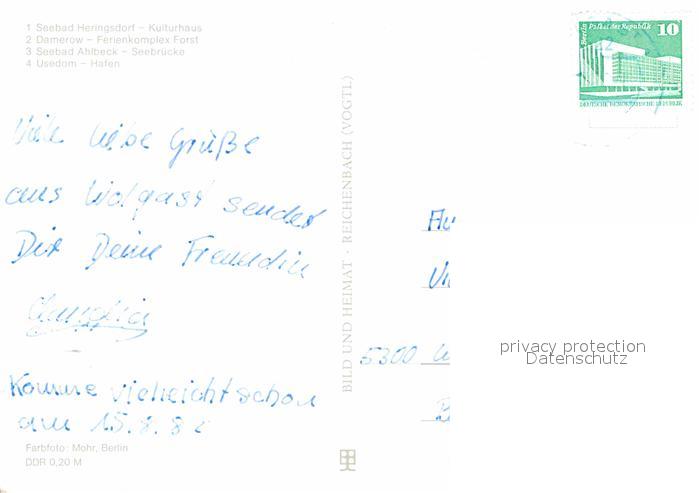 1 Seebad Heringsdorf – Kulturhaus
2 Damerow – Ferienkomplex Forst
3 Seebad Ahlbeck – Seebrücke
4 Usedom – Hafen
Berlin Palast der Republik 10
DEUTSCHE DEMOKRATISCHE REPUBLIK
Viele liebe Grüße
aus Wolgast sendet
Dir Deine Freundin
Claudia
Komme vielleicht schon
am 15.8.82
Farbfoto: Mohr, Berlin
DDR 0,20 M
BILD UND HEIMAT · REICHENBACH (VOGTL)
5300
privacy protection
Datenschutz